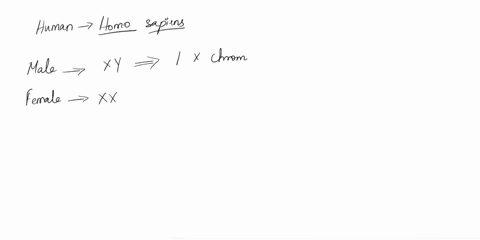 Human → Homo sapiens
Male → XY ⇒ 1 X chrom
Female → XX